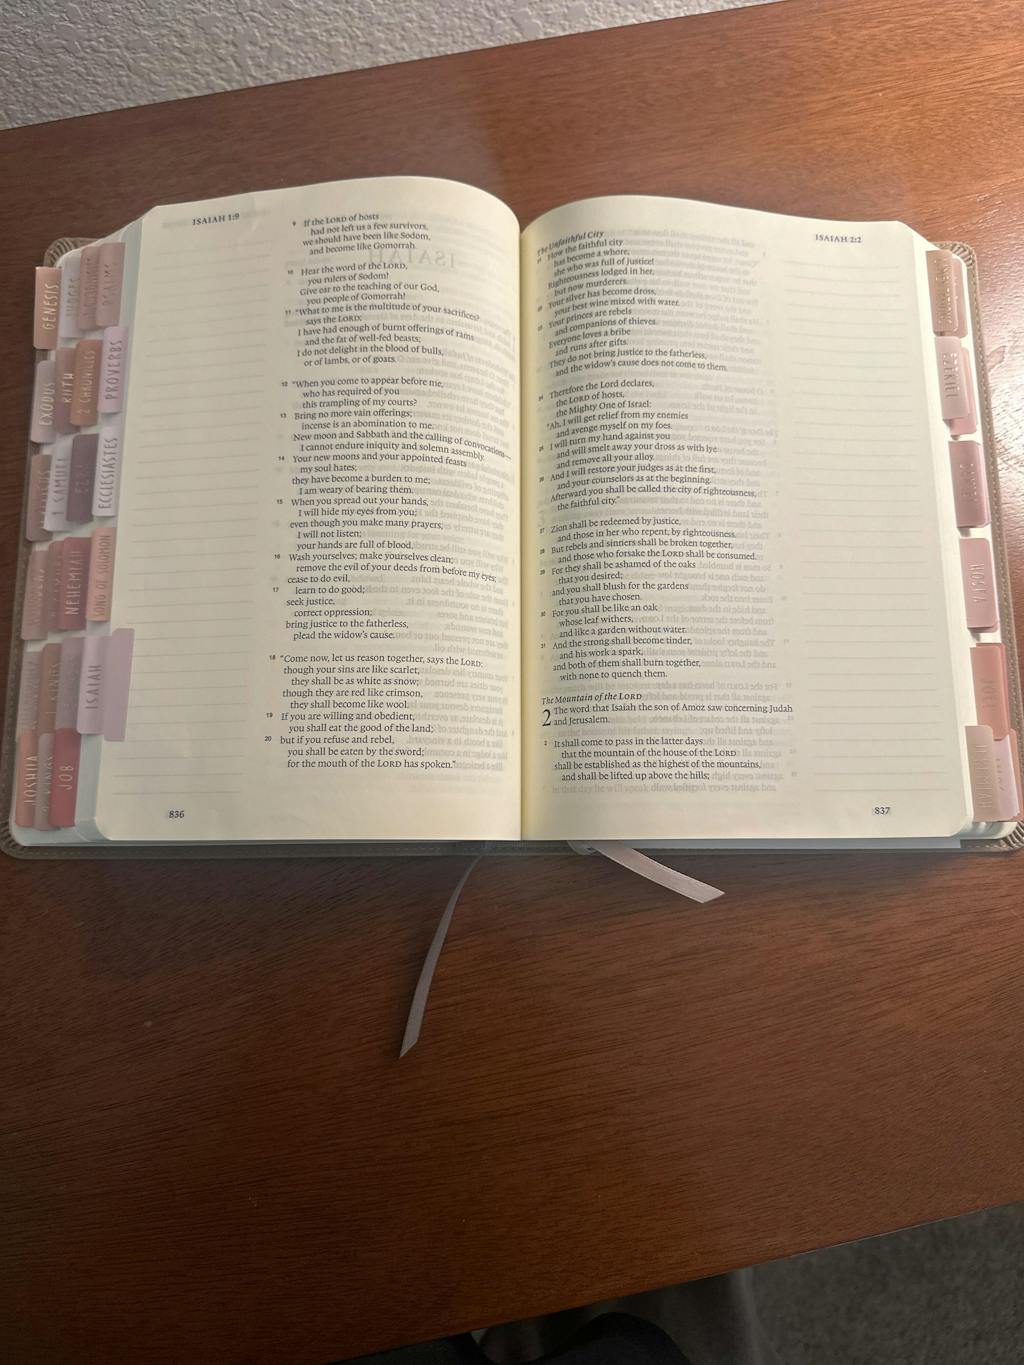 ISAIAH 1:9
9 If the LORD of hosts
had not left us a few survivors,
we should have been like Sodom,
and become like Gomorrah.
10 Hear the word of the LORD,
you rulers of Sodom!
Give ear to the teaching of our God,
you people of Gomorrah!
11 "What to me is the multitude of your sacrifices?
says the LORD;
I have had enough of burnt offerings of rams
and the fat of well-fed beasts;
I do not delight in the blood of bulls,
or of lambs, or of goats.
12 "When you come to appear before me,
who has required of you
this trampling of my courts?
13 Bring no more vain offerings;
incense is an abomination to me.
New moon and Sabbath and the calling of convocations—
I cannot endure iniquity and solemn assembly.
14 Your new moons and your appointed feasts
my soul hates;
they have become a burden to me;
I am weary of bearing them.
15 When you spread out your hands,
I will hide my eyes from you;
even though you make many prayers,
I will not listen;
your hands are full of blood.
16 Wash yourselves; make yourselves clean;
remove the evil of your deeds from before my eyes;
cease to do evil,
17 learn to do good;
seek justice,
correct oppression;
bring justice to the fatherless,
plead the widow's cause.
18 "Come now, let us reason together, says the LORD:
though your sins are like scarlet,
they shall be as white as snow;
though they are red like crimson,
they shall become like wool.
19 If you are willing and obedient,
you shall eat the good of the land;
20 but if you refuse and rebel,
you shall be eaten by the sword;
for the mouth of the LORD has spoken."
836
ISAIAH 2:2
The Unfaithful City
21 How the faithful city
has become a whore,
she who was full of justice!
Righteousness lodged in her,
but now murderers.
22 Your silver has become dross,
your best wine mixed with water.
23 Your princes are rebels
and companions of thieves.
Everyone loves a bribe
and runs after gifts.
They do not bring justice to the fatherless,
and the widow's cause does not come to them.
24 Therefore the Lord declares,
the LORD of hosts,
the Mighty One of Israel:
"Ah, I will get relief from my enemies
and avenge myself on my foes.
25 I will turn my hand against you
and will smelt away your dross as with lye
and remove all your alloy.
26 And I will restore your judges as at the first,
and your counselors as at the beginning.
Afterward you shall be called the city of righteousness,
the faithful city."
27 Zion shall be redeemed by justice,
and those in her who repent, by righteousness.
28 But rebels and sinners shall be broken together,
and those who forsake the LORD shall be consumed.
29 For they shall be ashamed of the oaks
that you desired;
and you shall blush for the gardens
that you have chosen.
30 For you shall be like an oak
whose leaf withers,
and like a garden without water.
31 And the strong shall become tinder,
and his work a spark,
and both of them shall burn together,
with none to quench them.
The Mountain of the LORD
2 The word that Isaiah the son of Amoz saw concerning Judah
and Jerusalem.
2 It shall come to pass in the latter days
that the mountain of the house of the LORD
shall be established as the highest of the mountains,
and shall be lifted up above the hills;
837
GENESIS
JUDGES
PSALMS
EXODUS
RUTH
2 CHRONICLES
PROVERBS
1 SAMUEL
EZRA
ECCLESIASTES
NEHEMIAH
SONG OF SOLOMON
ISAIAH
JOSHUA
2 KINGS
JOB
EZEKIEL
HOSEA
JOEL